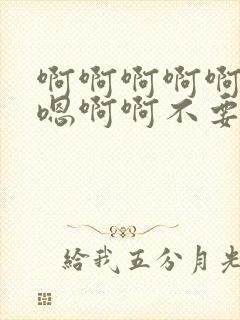 啊啊啊啊啊
嗯啊啊不要
給我五分月光